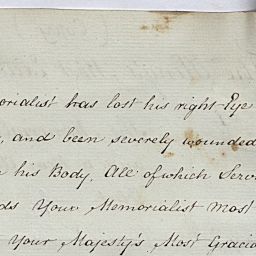 orialist has lost his right Eye
, and been severely wounded
his Body. All of which Serv
ds Your Memorialist most
Your Majesty's Most Gracio